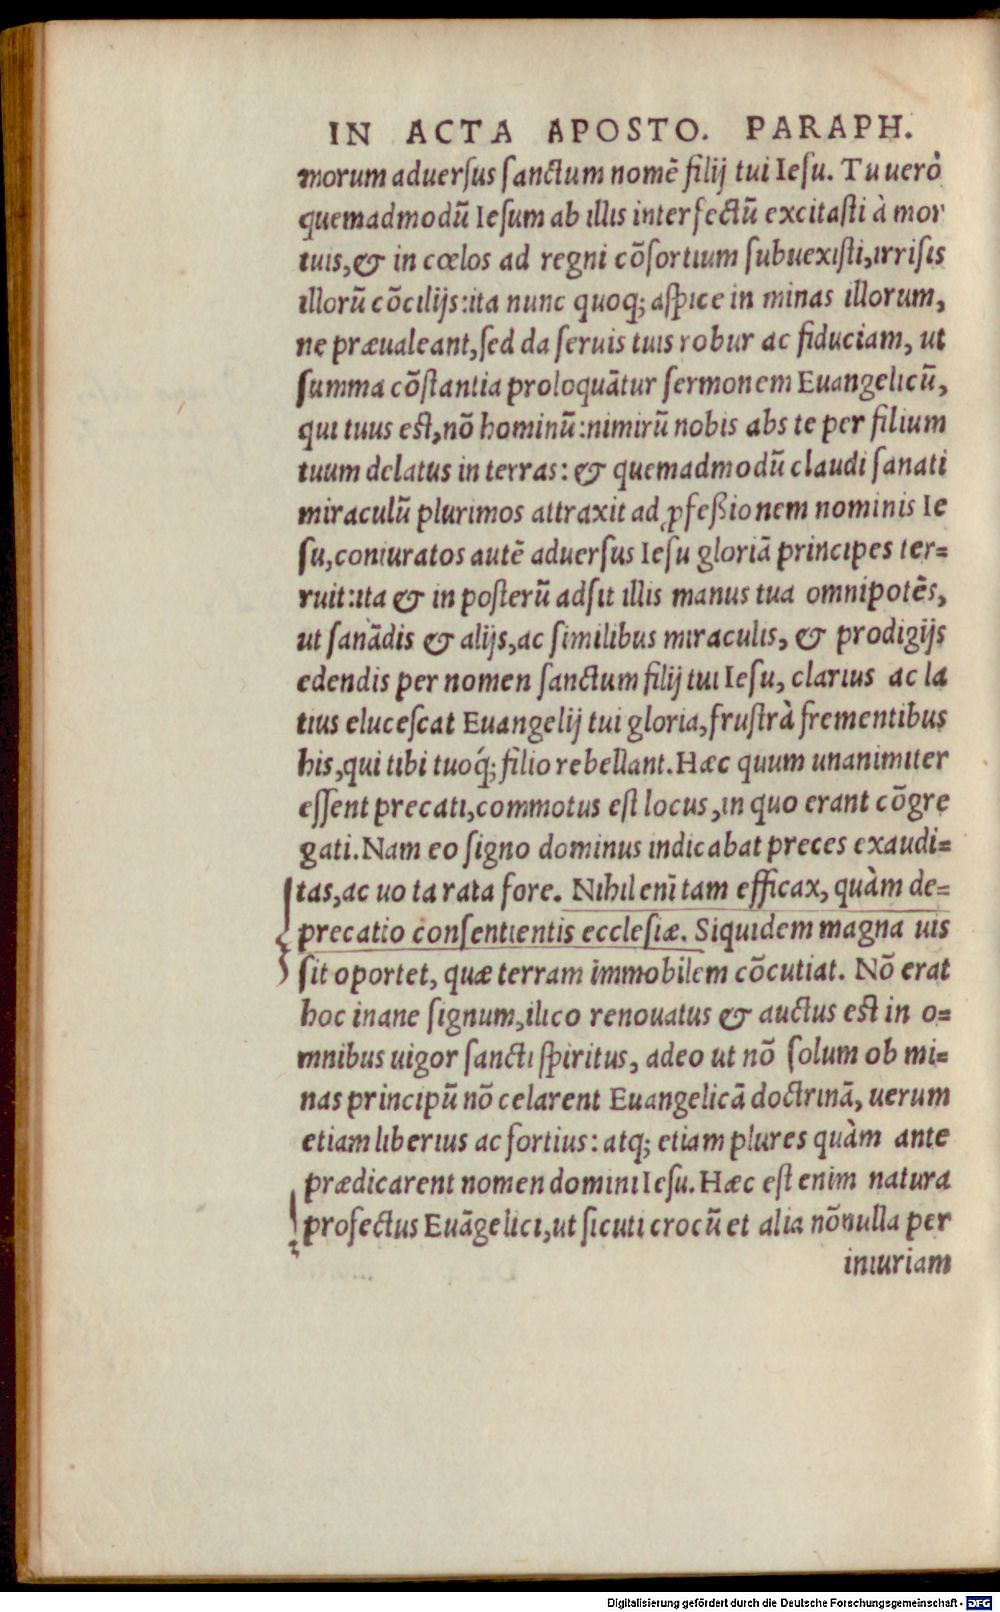 IN ACTA APOSTO. PARAPH.
morum aduersus sanctum nomē filij tui Iesu. Tu uerò
quemadmodū Iesum ab illis interfectū excitasti à mor
tuis, & in cœlos ad regni cōsortium subuexisti, irrisis
illorū cōcilijs: ita nunc quoq; aspice in minas illorum,
ne præualeant, sed da seruis tuis robur ac fiduciam, ut
summa cōstantia proloquātur sermonem Euangelicū,
qui tuus est, nō hominū: nimirū nobis abs te per filium
tuum delatus in terras: & quemadmodū claudi sanati
miraculū plurimos attraxit ad ꝓfeßionem nominis Ie
su, coniuratos autē aduersus Iesu gloriā principes ter=
ruit: ita & in posterū adsit illis manus tua omnipotēs,
ut sanādis & alijs, ac similibus miraculis, & prodigijs
edendis per nomen sanctum filij tui Iesu, clarius ac la
tius elucescat Euangelij tui gloria, frustrà frementibus
his, qui tibi tuoq́; filio rebellant. Hæc quum unanimiter
essent precati, commotus est locus, in quo erant cōgre
gati. Nam eo signo dominus indicabat preces exaudi=
tas, ac uota rata fore. Nihil enī tam efficax, quàm de=
precatio consentientis ecclesiæ. Siquidem magna uis
sit oportet, quæ terram immobilem cōcutiat. Nō erat
hoc inane signum, ilico renouatus & auctus est in o=
mnibus uigor sancti spiritus, adeo ut nō solum ob mi=
nas principū nō celarent Euangelicā doctrinā, uerum
etiam liberius ac fortius: atq; etiam plures quàm ante
prædicarent nomen domini Iesu. Hæc est enim natura
profectus Euāgelici, ut sicuti crocū et alia nōnulla per
iniuriam
Digitalisierung gefördert durch die Deutsche Forschungsgemeinschaft - DFG